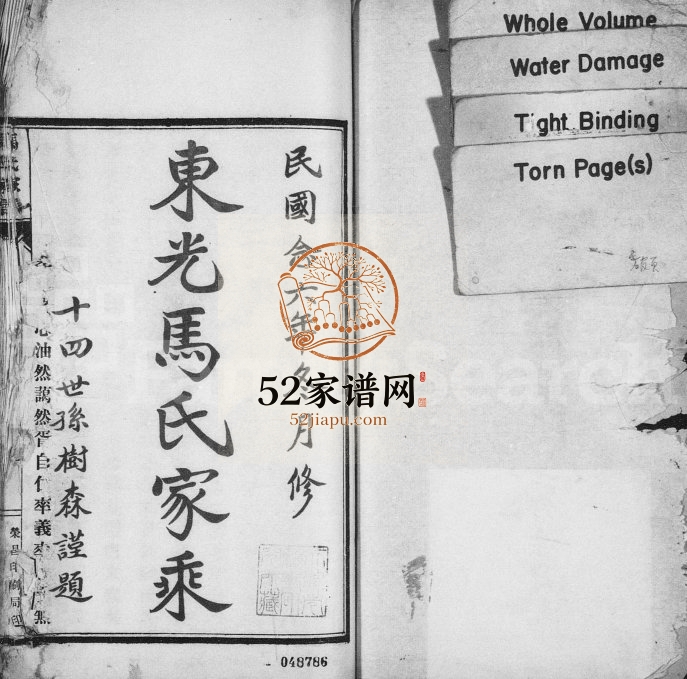 Whole Volume
Water Damage
Tight Binding
Torn Page(s)
民國念六年冬月修
東光馬氏家乘
十四世孫樹森謹題
油然藹然
自仁率義率
52家谱网
52jiapu.com
048786